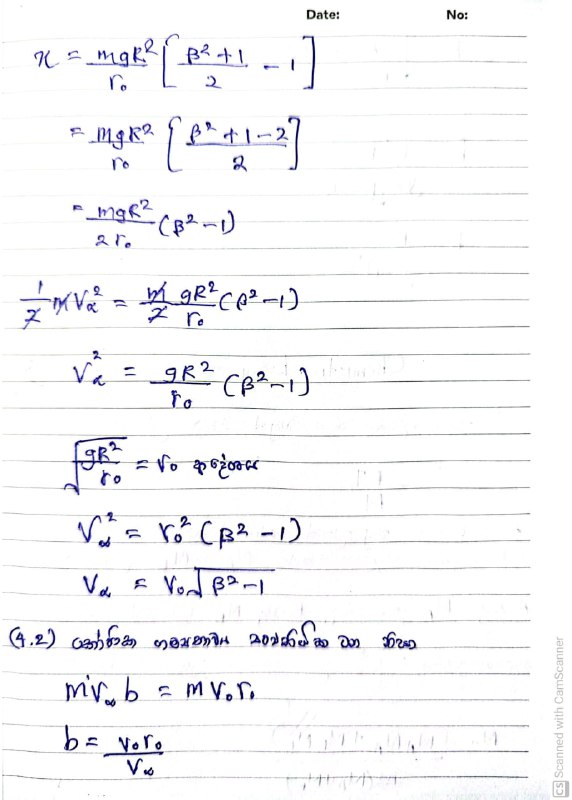 Date: No:
x = mgR²/r₀ [ (β²+1)/2 - 1 ]
= mgR²/r₀ [ (β²+1-2)/2 ]
= mgR²/2r₀ (β²-1)
1/2 m V∝² = m/2 gR²/r₀ (β²-1)
V∝² = gR²/r₀ (β²-1)
√(gR²/r₀) = v₀ ආදේශය
V∞² = V₀² (β²-1)
V∝ = V₀√(β²-1)
(4.2) කෝණික ගම්‍යතාවය සංස්ථිතික වන නිසා
mV∞ b = m V₀ r₀
b = V₀r₀/V∞
CS Scanned with CamScanner